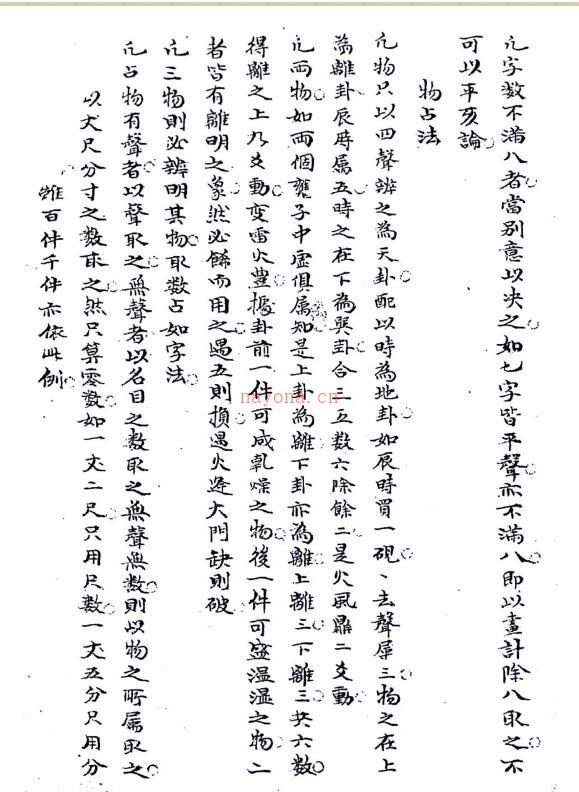 凡字数不滿八者當别意以决之如七字皆平聲亦不滿八即以畫計除八取之不
可以平亥論
物占法
凡物只以四聲辨之為天卦配以時為地卦如辰時買一硯、去聲屬三物之在上
為離卦辰時属五時之在下為巽卦合三五数六除餘二是火風鼎二爻動
凡两物如两個甕子中虚俱属知是上卦為離下卦亦為離上離三下離三共六数
得離之上九爻動变雷火豊據卦前一件可成乾燥之物後一件可盛温湿之物二
者皆有離明之象然必餙而用之過五則損過火逆大門缺則破
凡三物則必辨明其物取数占如字法
凡占物有聲者以聲取之無聲者以名目之数取之無聲無数則以物之所属取之
以丈尺分寸之数取之然只算零数如一丈二尺只用尺数一丈五分尺用分
雖百件千件亦依此例
nayona.cn